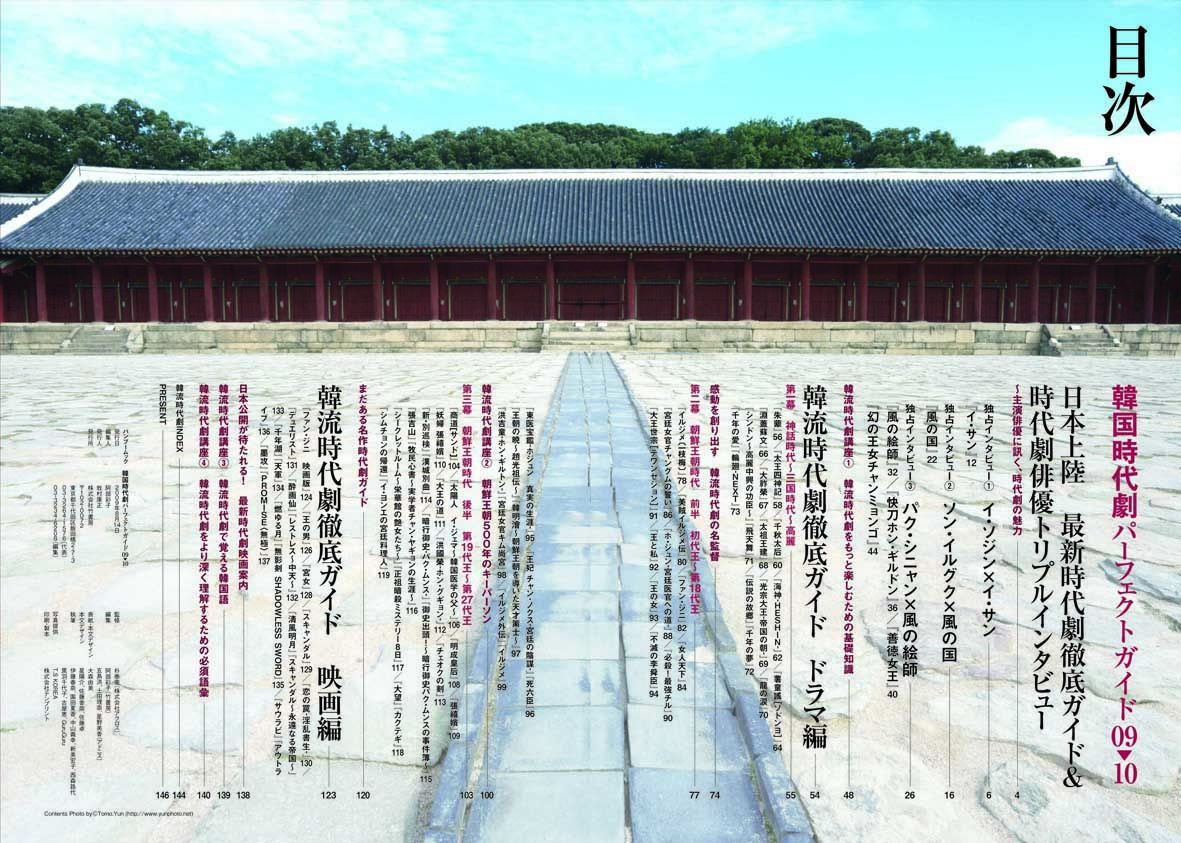 目次
韓国時代劇パーフェクトガイド09▼10
日本上陸 最新時代劇徹底ガイド&
時代劇俳優トリプルインタビュー
〜主演俳優に訊く、時代劇の魅力 4
独占インタビュー① イ・ソジン×イ・サン 6
『イ・サン』12
独占インタビュー② ソン・イルグク×風の国 16
『風の国』22
独占インタビュー③ パク・シニャン×風の絵師 26
『風の絵師』32/『快刀ホン・ギルドン』36/『善徳女王』40
幻の王女チャンミョンゴ 44
韓流時代劇講座① 韓流時代劇をもっと楽しむための基礎知識 48
韓流時代劇徹底ガイド ドラマ編 54
第一幕 神話時代〜三国時代〜高麗 55
『朱蒙』56/『太王四神記』58/『千秋太后』60/『海神-HESHIN』62/『薯童謠[ソドンヨ]』64
『淵蓋蘇文』66/『大祚榮』67/『太祖王建』68/『光宗大王〜帝国の朝』69/『龍の涙』70
『辛旽〜高麗中興の功臣〜』/『飛天舞』71/『伝説の故郷』/『千年の夢』72
『千年の愛』/『輪廻-NEXT』73
感動を創り出す 韓流時代劇の名監督 74
第二幕 朝鮮王朝時代 前半 初代王〜第18代王 77
『イルジメ〔一枝梅〕』78/『美賊イルジメ伝』80/『ファン・ジニ』82/『女人天下』84
『宮廷女官チャングムの誓い』86/『ホ・ジュン 宮廷医官への道』88/『必殺!最強チル』90
『大王世宗[テワンセジョン]』91/『王と私』92/『王の女』93/『不滅の李舜臣』94
『東医宝鑑・ホジュン 真実の生涯』95/『王妃 チャン・ノクス-宮廷の陰謀-』/『死六臣』96
『王朝の暁〜趙光祖伝〜』/『韓明澮〜朝鮮王朝を導いた天才策士〜』97
『洪吉童[ホン・ギルトン]』/『宮廷女官キム尚宮』98/『イルジメ外伝』/『イルジメ』99
韓流時代劇講座② 朝鮮王朝500年のキーパーソン 100
第三幕 朝鮮王朝時代 後半 第19代王〜第27代王 103
『商道[サンド]』104/『太陽人 イ・ジェマ〜韓国医学の父〜』106/『明成皇后』108/『張禧嬪』109
『妖婦 張禧嬪』110/『大王の道』111/『洪國榮[ホン・グギョン]』112/『チェオクの剣』113
『新・別巡検』/『漢城別曲』114/『暗行御史パク・ムンス』/『御史出頭!〜暗行御史パク・ムンスの事件簿〜』115
『張吉山』/『牧民心書〜実学者チャン・ヤギョンの生涯〜』116
『シークレットルーム〜栄華館の艶女たち〜』/『正祖暗殺ミステリー8日』117/『大望』/『カクテギ』118
『シムチョンの帰還』/『イ・ヨンエの宮廷料理人』119
まだある名作時代劇ガイド 120
韓流時代劇徹底ガイド 映画編 123
『ファン・ジニ 映画版』124/『王の男』126/『宮女』128/『スキャンダル』129/『恋の罠-淫乱書生-』130/
『デュエリスト』131/『酔画仙』/『レストレス〜中天〜』132/『清風明月』/『スキャンダル〜永遠なる帝国〜』
133/『千年湖』/『天軍』134/『燃ゆる月』/『無影剣 SHADOWLESS SWORD』135/『サウラビ』/『アウトラ
イブ』136/『墨攻』/『PROMISE〔無極〕』137
日本公開が待たれる! 最新時代劇映画案内 138
韓流時代劇講座③ 韓流時代劇で覚える韓国語 139
韓流時代劇講座④ 韓流時代劇をより深く理解するための必須語彙 140
韓流時代劇INDEX 144
PRESENT 146
Contents Photo by©Tomo.Yun (http://www.yunphoto.net)